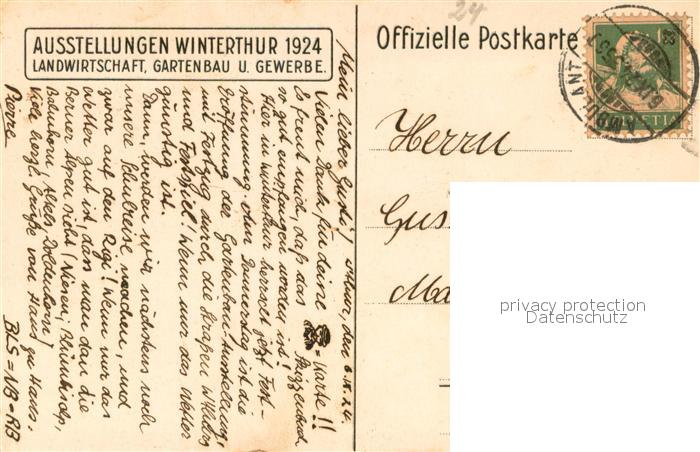 AUSSTELLUNGEN WINTERTHUR 1924
LANDWIRTSCHAFT, GARTENBAU U. GEWERBE.
Offizielle Postkarte
24
HELVETIA
Herrn
Gus
Ma
privacy protection
Datenschutz
Mein lieber Gusti! W'thur, den 6.IX.24.
Vielen Dank für deine = Karte!!
Es freut mich, daß das
so gut empfangen worden ist!
Hier in Winterthur herrscht jetzt Fest-
stimmung, denn Donnerstag ist die
Eröffnung der Gartenbau Ausstellung,
mit Festzug durch die Straßen W'thurs
und Festspiel! Wenn nur das Wetter
günstig ist.
Dann werden wir nächstens noch
unsere Schulreise machen, und
zwar auf den Rigi! Wenn nur das
Wetter gut ist, dass man dan die
Berner Alpen sieht (Niesen,
Balmhorn, Altels Doldenhorn)
Viele herzl. Grüße von Haus zu Haus.
Pierre BLS = NB = RB